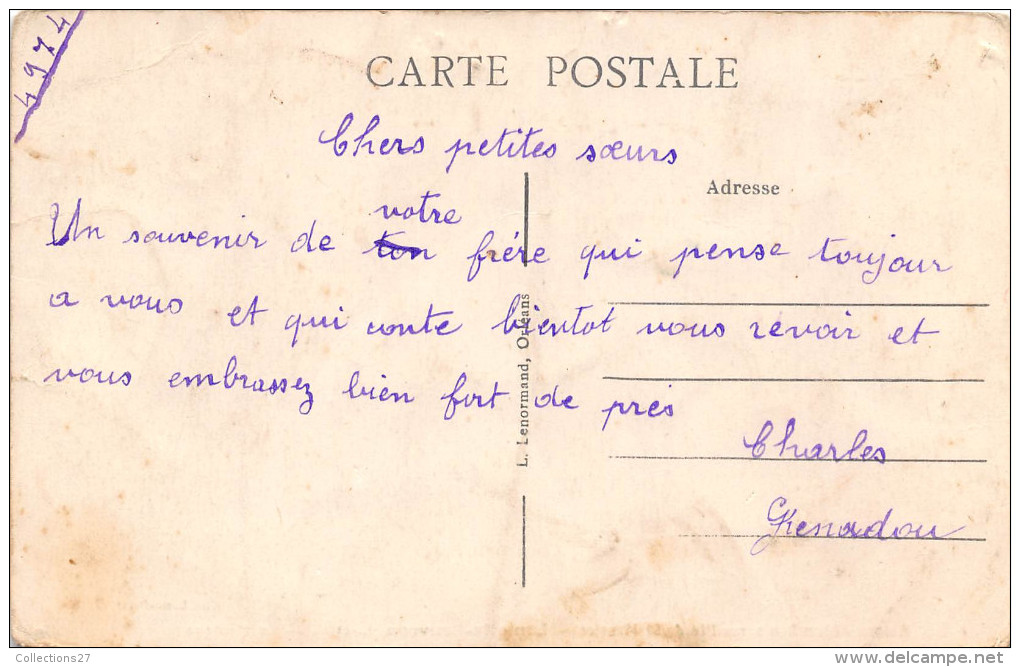 4974
CARTE POSTALE
Chers petites sœurs
Adresse
votre
Un souvenir de ton frére qui pense toujour
a vous et qui conte bientot vous revoir et
vous embrassez bien fort de prés
Charles
L. Lenormand, Orléans
Collections27
delcampe.net